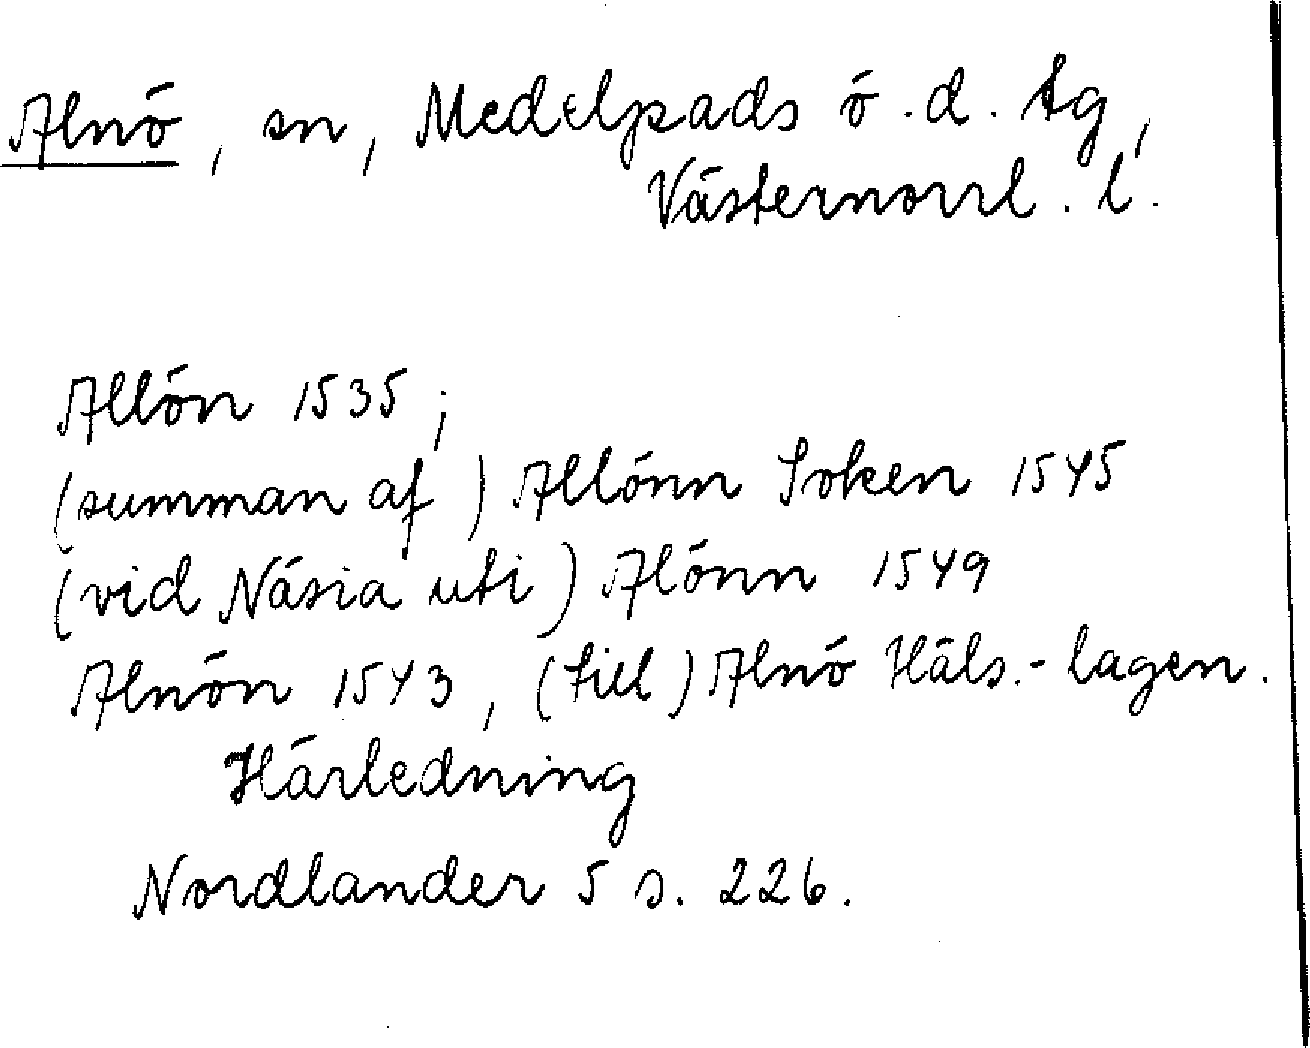 Alnö, sn, Medelpads ö.d. tg,
Västernorrl. l.
Allön 1535;
(summan af) Allönn Soken 1545
(vid Näsia uti) Alönn 1549
Alnön 1543, (till) Alnö Häls.-lagen.
Härledning
Nordlander 5 s. 226.